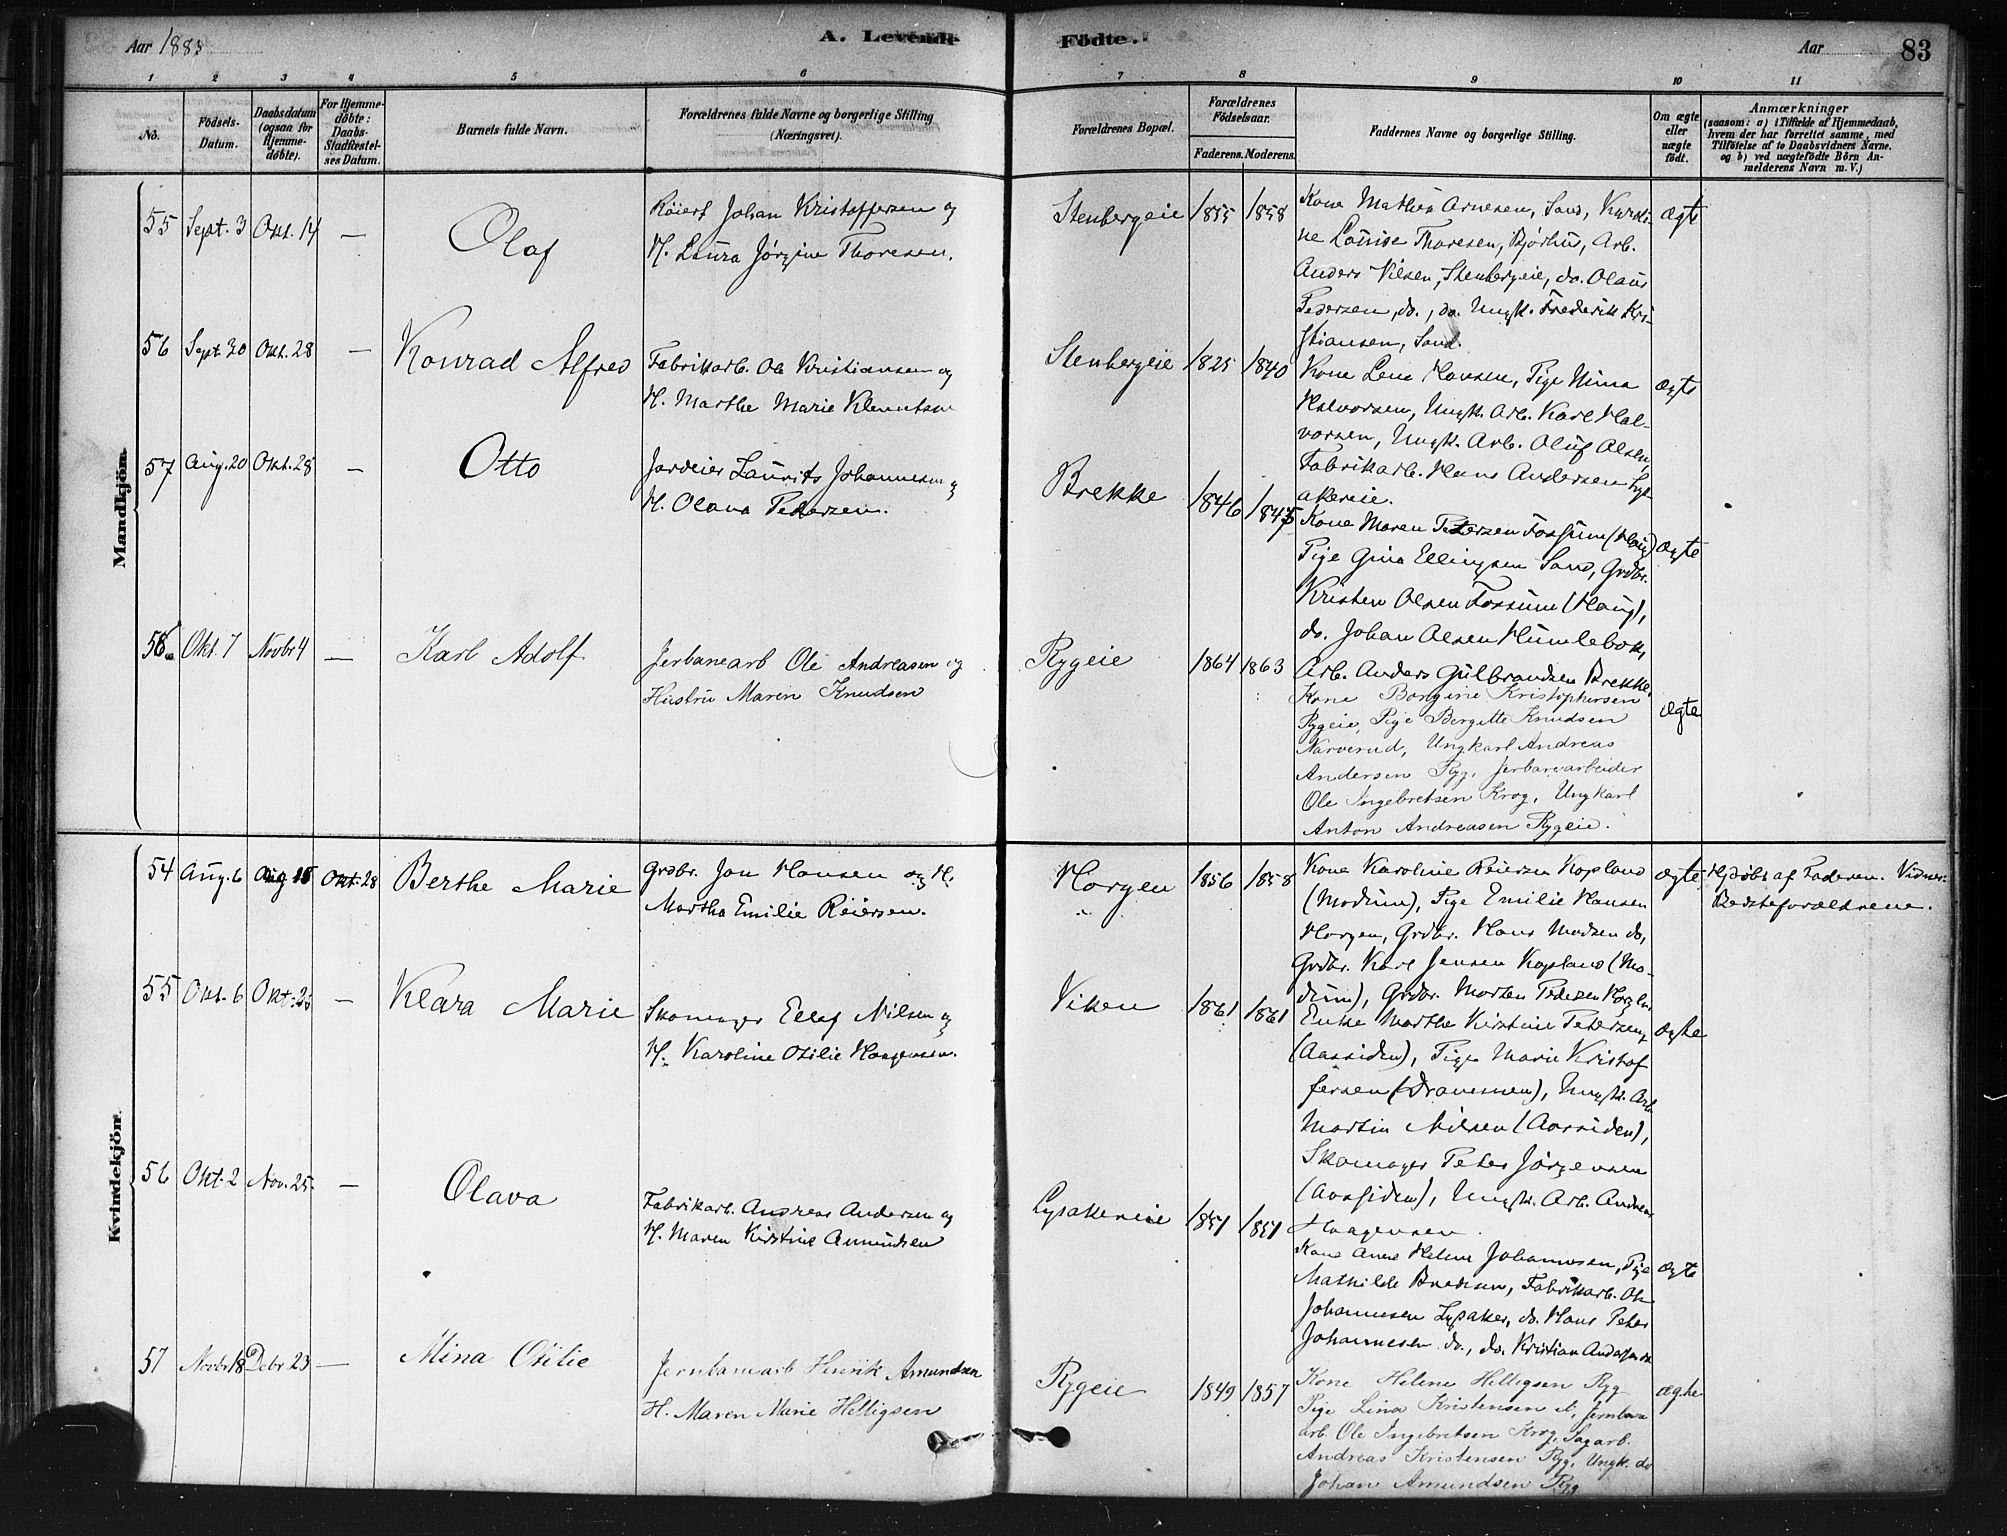 Aar 1883
A. Levende
Födte.
Aar
83
1 2 3 4 5 6 7 8 9 10 11
No.
Födsels-Datum.
Daabsdatum (ogsaa for Hjemme-döbte).
For Hjemme-döbte: Daabs-Stadfæstel-ses Datum.
Barnets fulde Navn.
Forældrenes fulde Navne og borgerlige Stilling (Næringsvei).
Forældrenes Bopæl.
Forældrenes Födselsaar.
Faderens. Moderens.
Faddernes Navne og borgerlige Stilling.
Om ægte eller uægte födt.
Anmærkninger
(saasom: a) i Tilfælde af Hjemmedaab,
hvem der har forrettet samme, med
Tilföielse af to Daabsvidners Navne.
og b) ved uægtefödte Börn An-
melderens Navn m. V.)
Mandkjön.
55 Sept. 3 Okt. 14 — Olaf
Johan Kristoffersen og
H. Laura Jørgine Thoresen.
Stenbergeie 1855 1858
Kone Mathea Arnesen, Sand, Karoli-
ne Louise Thoresen, Bjørhus, Arb.
Anders Nilsen, Stenbergeie, do. Olaus
Pedersen, do., do. Ungk. Frederik Kri-
stiansen, Sand.
ægte
56 Sept. 30 Okt. 28 — Konrad Alfred
Fabrikarb. Ole Kristiansen og
H. Marthe Marie Klemetsen
Stenbergeie 1825 1840
Kone Lene Hansen, Pige Mina
Halvorsen, Ungk. Arb. Karl Hal-
vorsen, Ungk. Arb. Oluf Olsen,
Fabrikarb. Hans Andersen Lys-
akereie.
ægte
57 Aug. 20 Okt. 28 — Otto
Jordeier Laurits Johannesen og
H. Olava Pedersen.
Brekke 1846 1845
Kone Maren Petersen Fossum (Haug)
Pige Gina Ellingsen Sand, Grdbr.
Kristen Olsen Fossum (Haug),
do. Johan Olsen Humlebæk,
Arb. Anders Gulbrandsen Brekke.
ægte
58 Okt. 7 Novbr 4 — Karl Adolf
Jerbanearb Ole Andreasen og
Hustru Maren Knudsen
Rygeie 1864 1863
Kone Borgine Kristophersen
Rygeie, Pige Bergitte Knudsen
Narverud, Ungkarl Andreas
Andersen Ryg, Jerbanearbeider
Ole Ingebretsen Krog, Ungkarl
Anton Andreasen Rygeie.
ægte
Kvindekjön.
54 Aug. 6 Aug 15 Okt. 28 Berthe Marie
Grdbr. Jon Hansen og H.
Martha Emilie Reiersen.
Horgen 1856 1858
Kone Karoline Reiersen Kopland
(Modum), Pige Emilie Hansen
Horgen, Grdbr. Hans Madsen do,
Grdbr. Karl Jensen Kopland (Mo-
dum), Grdbr. Morten Pedersen Horgen
ægte
Hjdøbt af Faderen. Vidner:
Bedsteforældrene.
55 Okt. 6 Okt. — Klara Marie
Skomager Ellef Nilsen og
H. Karoline Otilie Haagensen.
Viken 1861 1861
Enke Marthe Kirstine Petersen
(Aassiden), Pige Marie Kristof
fersen (Drammen), Ungk. Arb.
Martin Nilsen (Aassiden),
Skomager Peter Jørgensen
(Aassiden), Ungk. Arb. Andreas
Haagensen.
ægte
56 Okt. 2 Nov. 25. — Olava
Fabrikarb. Andreas Andersen og
H. Maren Kirstine Amundsen
Lysakereie 1851 1851
Kone Anne Helene Johannesen, Pige
Mathilde Bredesen, Fabrikarb. Ole
Johannesen Lysaker, do. Hans Peter
Johannesen do., do. Kristian Andersen do
ægte
57 Novbr 18 Debr 23 — Mina Otilie
Jernbanearb Henrik Amundsen
H. Maren Marie Helligsen
Rygeie 1849 1857
Kone Helene Helligsen Ryg
Pige Lina Kristensen Jernbane
arb. Ole Ingebretsen Krog, Sagarb.
Andreas Kristensen Ryg, Ungk. do
Johan Amundsen Ryg
ægte